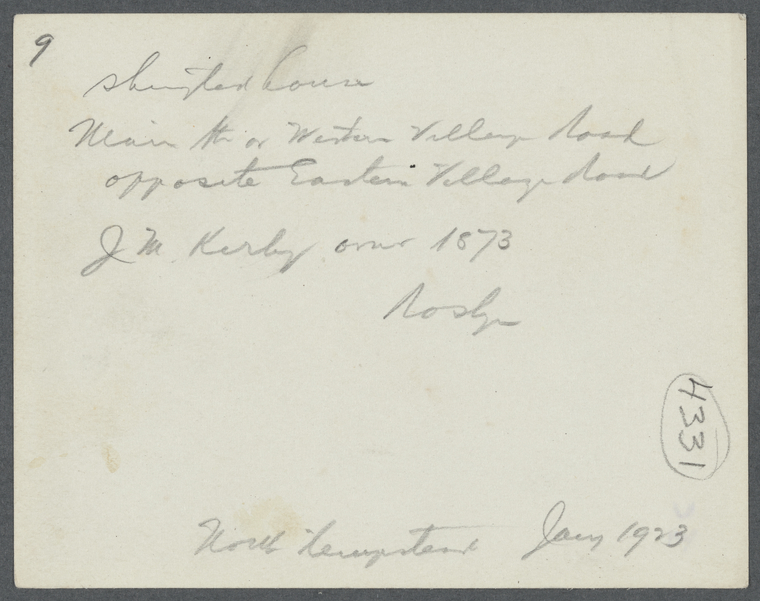 9
shingled house
Main St or Western Village Road
opposite Eastern Village Road
J M Kirby owner 1873
Roslyn
4331
North Hempstead Jany 1923